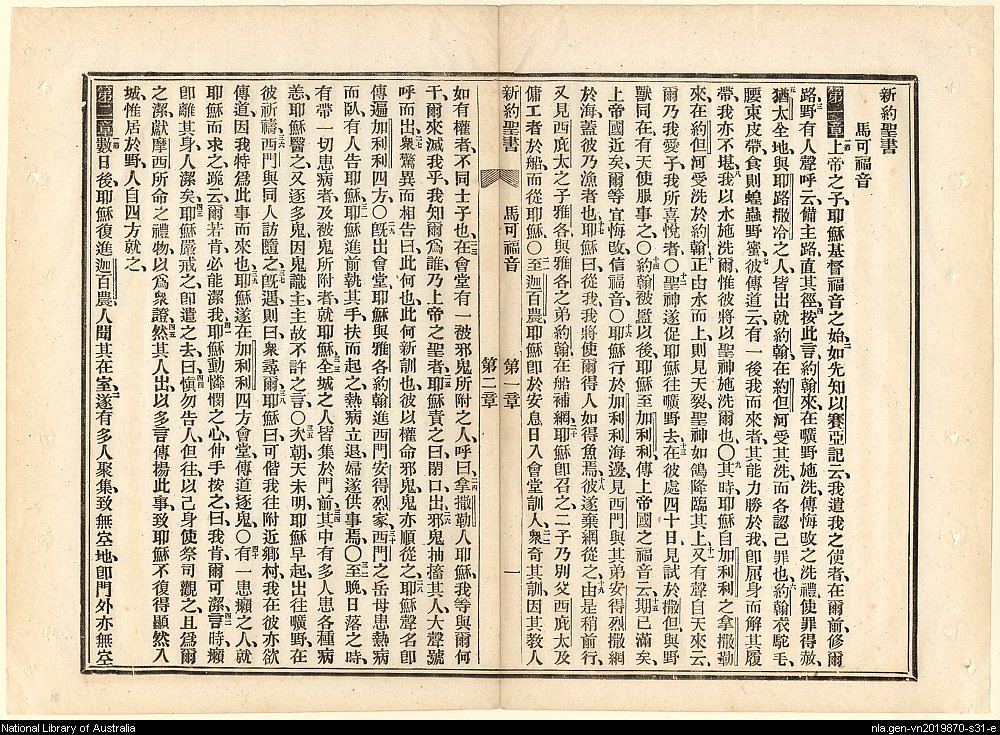 新約聖書
馬可福音
第一章上帝之子耶穌基督福音之始、如先知以賽亞記云、我遣我之使者在爾前修爾
路、野有人聲呼云、備主路、直其徑、按此言、約翰來在曠野施洗、傳悔改之洗禮、使罪得赦、
猶太全地、與耶路撒冷之人、皆出就約翰、在約但河受其洗、而各認己罪也、約翰衣駝毛、
腰束皮帶、食則蝗蟲野蜜、彼傳道云、有一後我而來者、其能力勝於我、我卽屈身而解其履
帶、我亦不堪、我以水施洗爾、惟彼將以聖神施洗爾也、〇其時耶穌自加利利之拿撒勒
來、在約但河受洗於約翰、正由水而上、則見天裂、聖神如鴿降臨其上、又有聲自天來云、
爾乃我愛子、我所喜悅者〇聖神遂促耶穌往曠野去、在彼處四十日、見試於撒但、與野
獸同在、有天使服事之、〇約翰被監以後、耶穌至加利利、傳上帝國之福音云、期已滿矣、
上帝國近矣、爾等宜悔改、信福音、〇耶穌行於加利利海邊、見西門與其弟安得烈撒網
於海、蓋彼乃漁者也、耶穌曰、從我、我將使爾得人如得魚焉、彼遂棄網從之、由是稍前行、
又見西庇太之子雅各、與雅各之弟約翰、在船補網、耶穌卽召之、二子乃別父西庇太及
傭工者於船、而從耶穌、〇至迦百農、耶穌卽於安息日入會堂訓人、衆奇其訓、因其教人
新約聖書 馬可福音 第一章 第二章 一
如有權者、不同士子也、在會堂有一被邪鬼所附之人、呼曰、拿撒勒人耶穌、我等與爾何
干、爾來滅我乎、我知爾爲誰、乃上帝之聖者、耶穌責之曰、閉口出、邪鬼抽搐其人、大聲號
呼而出、衆驚異而相告曰、此何也、此何新訓也、彼以權命邪鬼、鬼亦順從之、耶穌聲名卽
傳遍加利利四方、〇旣出會堂、耶穌與雅各約翰、進西門安得烈家、西門之岳母患熱病
而臥、有人告耶穌、耶穌進前、執其手、扶而起之、熱病立退、婦遂供事焉、〇至晚日落之時、
有帶一切患病者、及被鬼所附者、就耶穌、全城之人皆集於門前、其中有多人患各種病
恙、耶穌醫之、又逐多鬼、因鬼識主、主故不許之言、〇次朝天未明、耶穌早起、出往曠野、在
彼祈禱、西門與同人訪隨之、旣遇、則曰、衆尋爾、耶穌曰、可偕我往附近鄉村、我在彼亦欲
傳道、因我特爲此事而來也、耶穌遂在加利利四方會堂傳道逐鬼、〇有一患癩之人、就
耶穌而求之、跪云、爾若肯、必能潔我、耶穌動憐憫之心、伸手按之曰、我肯、爾可潔、言時癩
卽離其身、人潔矣、耶穌嚴戒之、卽遣之去曰、愼勿告人、但往以己身使祭司觀之、且爲爾
之潔、獻摩西所命之禮物、以爲衆證、然其人出、以多言傳揚此事、致耶穌不復得顯然入
城、惟居於野、人自四方就之、
第二章數日後、耶穌復進迦百農、人聞其在室、遂有多人聚集、致無空地、卽門外亦無空
National Library of Australia
nla.gen-vn2019870-s31-e